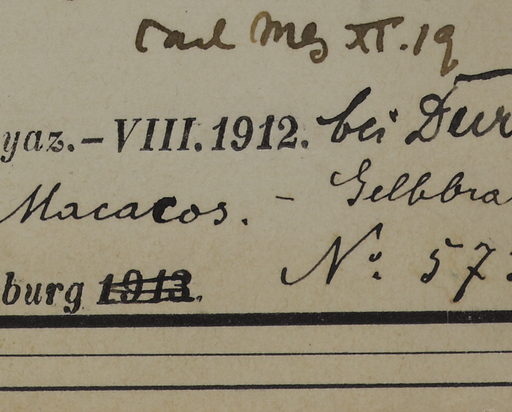 Carl Mez XI. 19
yaz.–VIII. 1912. bei Dur
Macacos. – Gelbbra
burg 1913. Nº 573